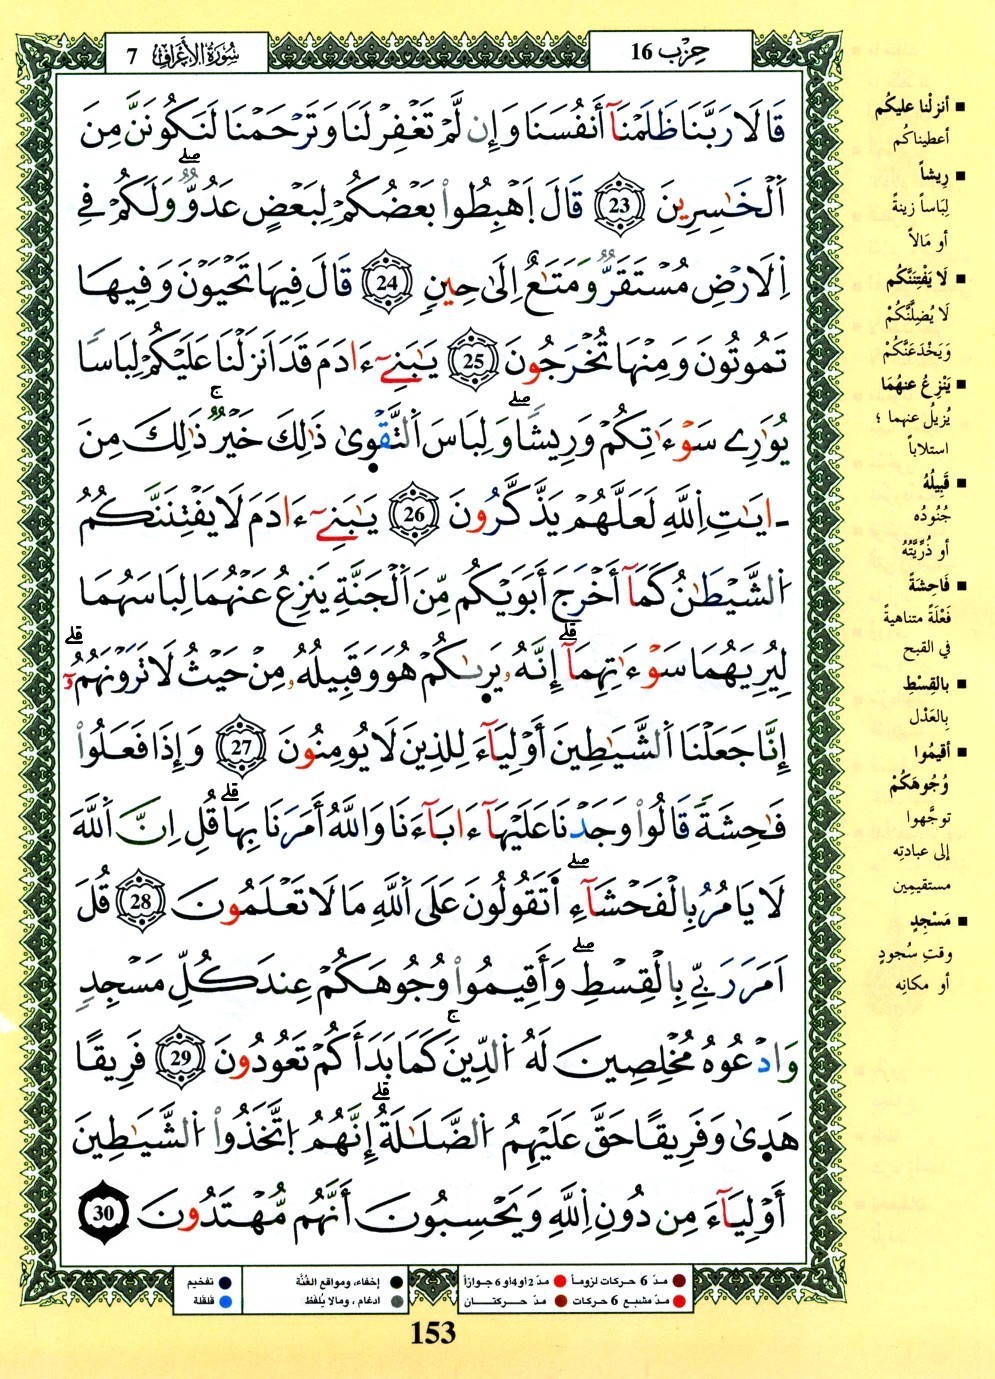 حِزْب 16
سُورَةُ الأَعْرَافِ 7
قَالَا رَبَّنَا ظَلَمْنَآ أَنفُسَنَا وَإِن لَّمْ تَغْفِرْ لَنَا وَتَرْحَمْنَا لَنَكُونَنَّ مِنَ
اَ۬لْخَٰسِرِينَ 23 قَالَ اَ۪هْبِطُواْ بَعْضُكُمْ لِبَعْضٍ عَدُوّٞۖ وَلَكُمْ فِے
اِ۬لَارْضِ مُسْتَقَرّٞ وَمَتَٰعٌ إِلَىٰ حِينٖ 24 قَالَ فِيهَا تَحْيَوْنَ وَفِيهَا
تَمُوتُونَ وَمِنْهَا تُخْرَجُونَ 25 يَٰبَنِےٓ ءَادَمَ قَدَ اَنزَلْنَا عَلَيْكُمْ لِبَاسٗا
يُوَٰرِے سَوْءَٰتِكُمْ وَرِيشٗاۖ وَلِبَاسَ اَ۬لتَّقْوِىٰ ذَٰلِكَ خَيْرٞۚ ذَٰلِكَ مِنَ
ـ ايَٰتِ اِ۬للَّهِ لَعَلَّهُمْ يَذَّكَّرُونَ 26 يَٰبَنِےٓ ءَادَمَ لَا يَفْتِنَنَّكُمُ
اُ۬لشَّيْطَٰنُ كَمَآ أَخْرَجَ أَبَوَيْكُم مِّنَ اَ۬لْجَنَّةِ يَنزِعُ عَنْهُمَا لِبَاسَهُمَا
لِيُرِيَهُمَا سَوْءَٰتِهِمَآۖ إِنَّهُۥ يَرِىٰكُمْ هُوَ وَقَبِيلُهُۥ مِنْ حَيْثُ لَا تَرَوْنَهُمُۥٓۖ
إِنَّا جَعَلْنَا اَ۬لشَّيَٰطِينَ أَوْلِيَآءَ لِلذِينَ لَا يُومِنُونَ 27 وَإِذَا فَعَلُواْ
فَٰحِشَةٗ قَالُواْ وَجَدْنَا عَلَيْهَآ ءَابَآءَنَا وَاللَّهُ أَمَرَنَا بِهَاۖ قُلِ اِنَّ اَ۬للَّهَ
لَا يَامُرُ بِالْفَحْشَآءِۖ اَتَقُولُونَ عَلَى اَ۬للَّهِ مَا لَا تَعْلَمُونَ 28 قُلَ
اَمَرَ رَبِّے بِالْقِسْطِۖ وَأَقِيمُواْ وُجُوهَكُمْ عِندَ كُلِّ مَسْجِدٖ
وَادْعُوهُ مُخْلِصِينَ لَهُ اُ۬لدِّينَۚ كَمَا بَدَأَكُمْ تَعُودُونَ 29 فَرِيقاً
هَدِىٰ وَفَرِيقاً حَقَّ عَلَيْهِمُ اُ۬لضَّلَٰلَةُۖ إِنَّهُمُ اُ۪تَّخَذُواْ اُ۬لشَّيَٰطِينَ
أَوْلِيَآءَ مِن دُونِ اِ۬للَّهِ وَيَحْسِبُونَ أَنَّهُم مُّهْتَدُونَ 30
■ أنزلْنا عليكُم
أعطيناكُم
■ رِيشاً
لِبَاساً زينةً
أو مَالاً
■ لَا يَفْتِنَنَّكُم
لَا يُضِلَّنَّكُمْ
وَيَخْدَعَنَّكُمْ
■ يَنْزِعُ عنهُمَا
يُزيلُ عنهما ؛
استلاباً
■ قَبِيلُهُ
جُنُودُه
أو ذُرِّيَّتُهُ
■ فَاحِشَةً
فَعْلَةً متناهيةً
في القبح
■ بالقِسْطِ
بِالعَدْلِ
■ أقيمُوا
وُجُوهَكُمْ
توجَّهوا
إلى عبادتِه
مستقيمِين
■ مَسْجِدٍ
وقتِ سُجودٍ
أو مكانِه
مدّ 6 حركات لزوماً مدّ 2 أو 4 أو 6 جوازاً إخفاء، ومواقع الغُنَّة تفخيم
مدّ مشبع 6 حركات مدّ حركتان ادغام، ومالا يُلفَظ قلقلة
153